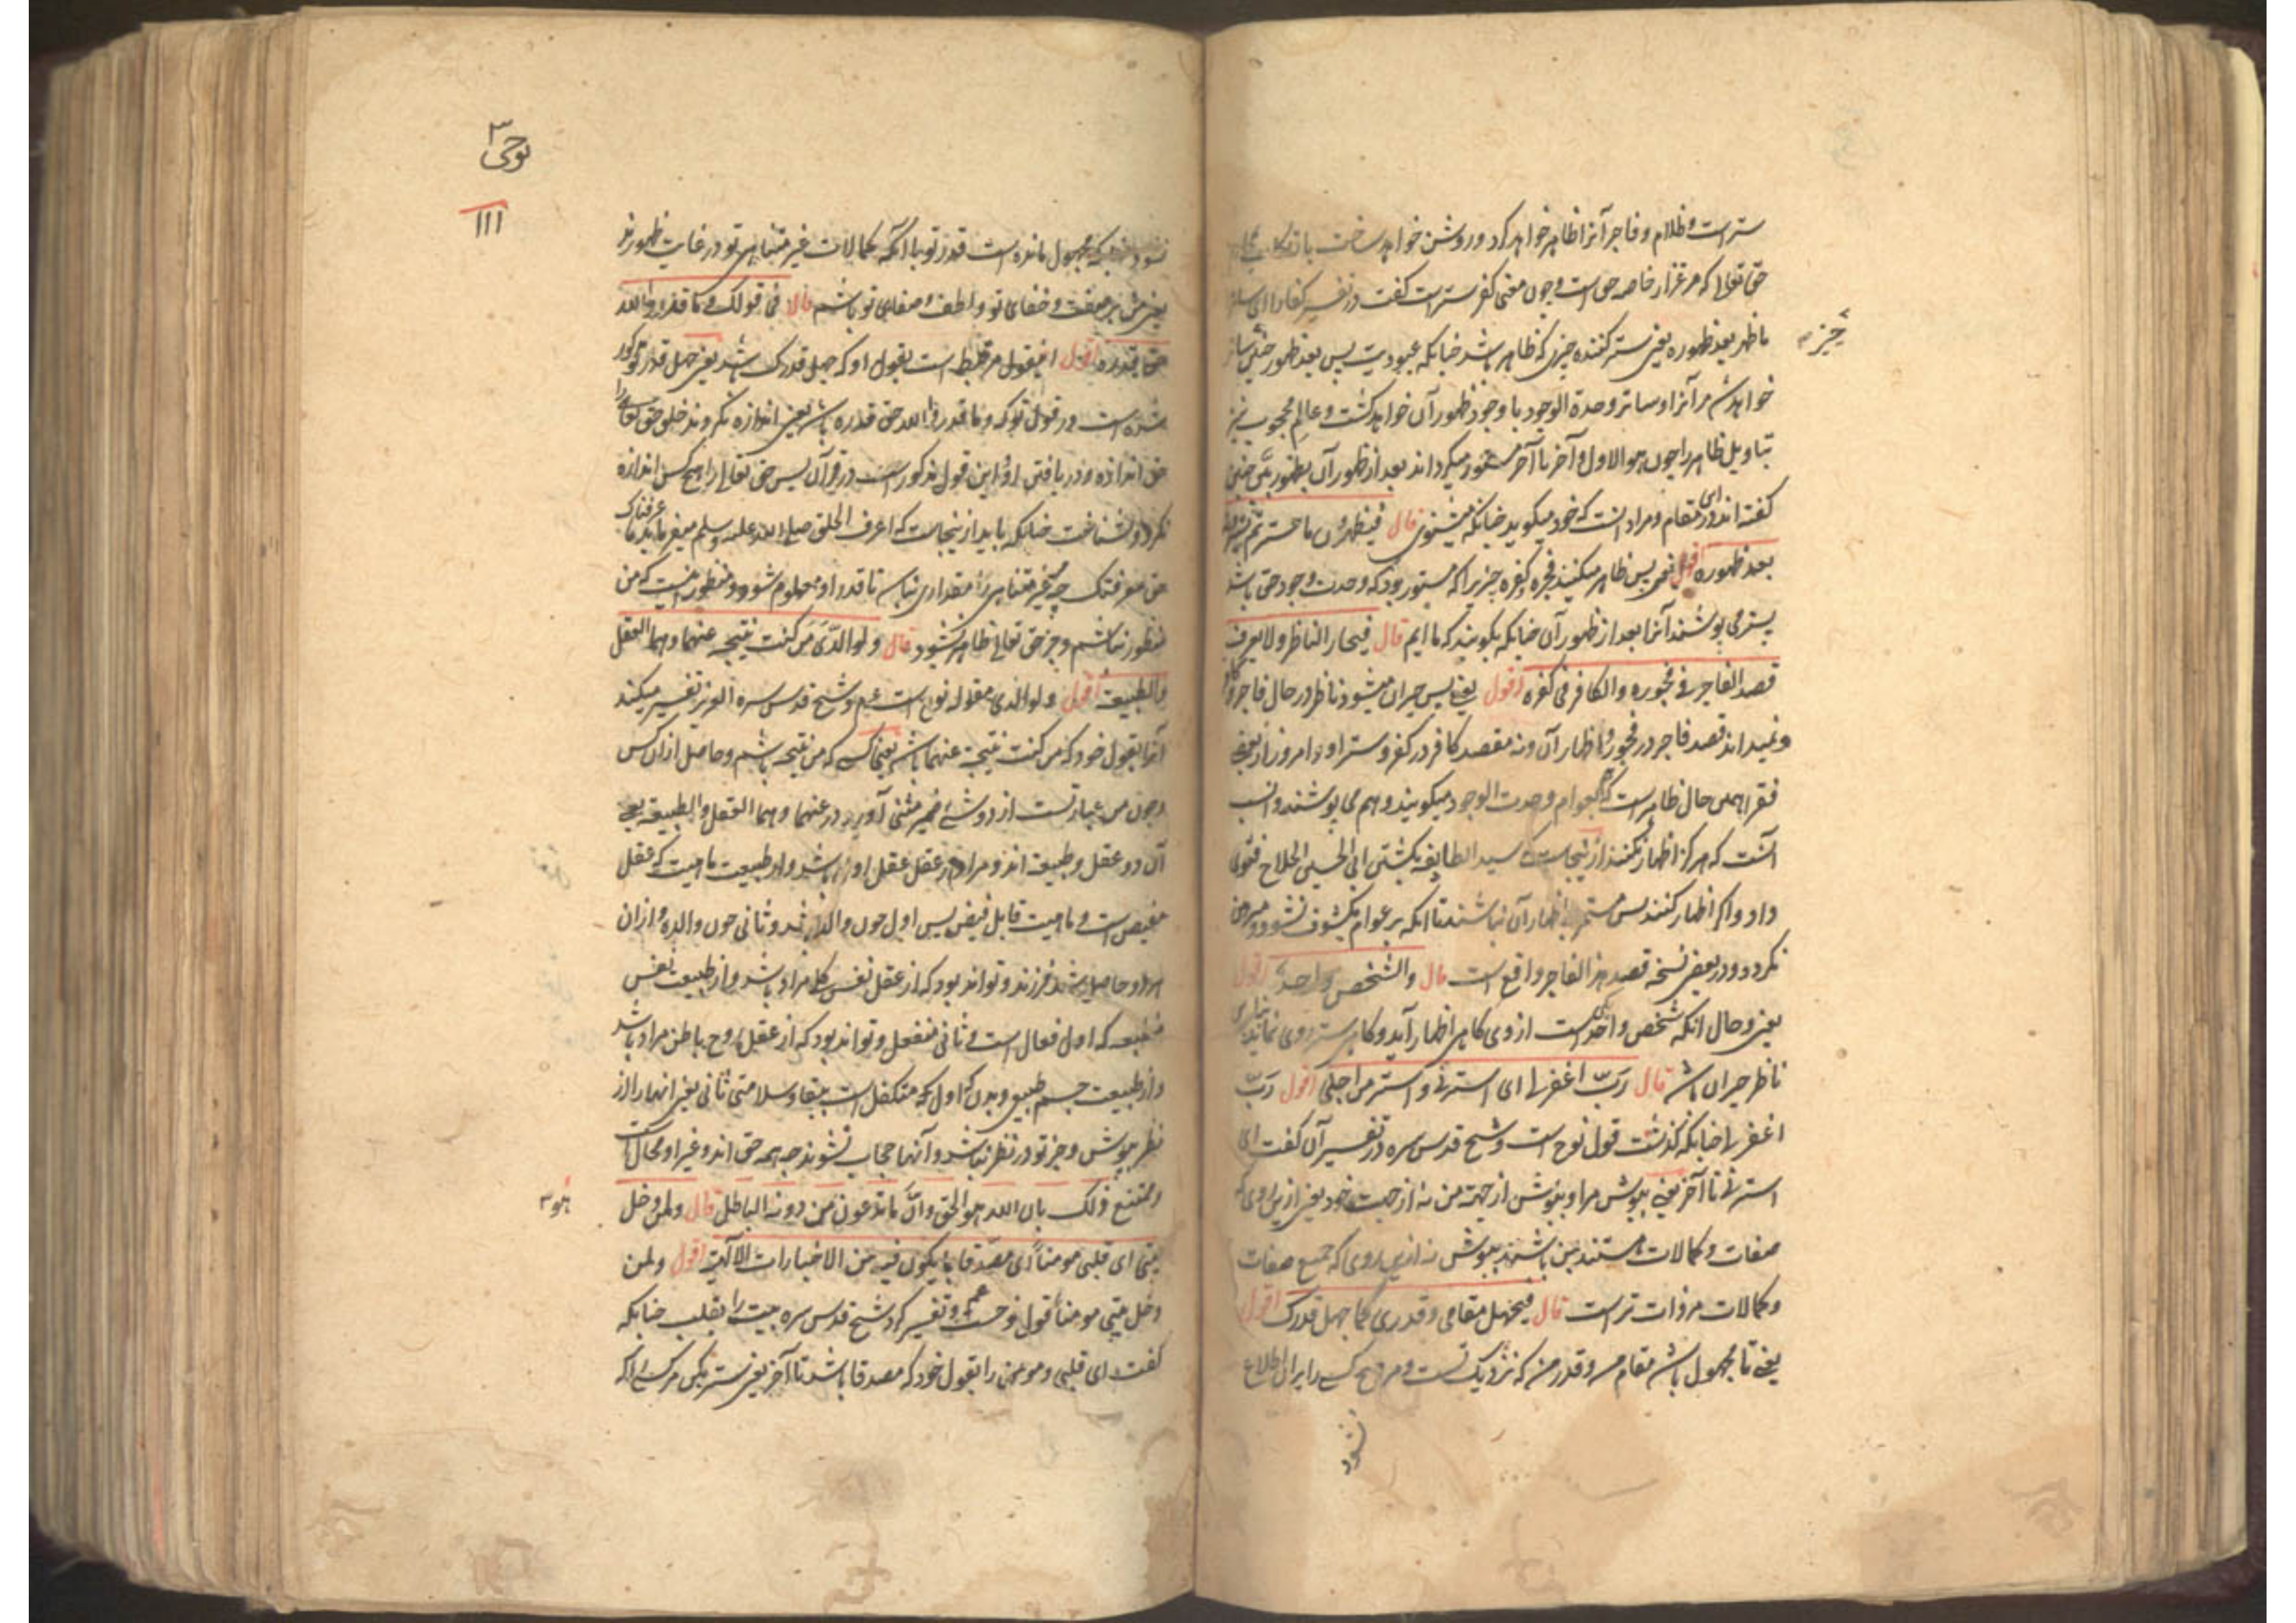 ستر است و ظلام و فاجر آنرا ظاهر خواهد کرد و روشن خواهد ساخت
حق تعالی که مر غفار خاصه حق است و چون معنی کفر ستر است گفت در تفسیر کفارا ای ساترا
ما ظهر بعد ظهوره یعنی ستر کننده چیزی که ظاهر باشد چنانکه عبودیت پس بعد ظهور حقی ساتر
چیز ۳
خواهد شد مر آنرا و ساتر وحدة الوجود با وجود ظهور آن خواهد گشت و عالم محجوب نیز
بتاویل ظاهر را چون هو الاول و آخر تا آخر مستور میگرداند بعد از ظهور آن
گفته اند و درای مقام و مراد آنست که خود میگوید چنانکه میشنوی قال فیظهرون ما ستر ثم یسترونه
بعد ظهوره اقول یعنی پس ظاهر میکنند فجره کفره چیزیرا که مستور بود که وحدت وجود حق باشد
پستر می پوشند آنرا بعد از ظهور آن چنانکه بگویند که ما ایم قال فیحار الناظر ولا یعرف
قصد الفاجر فی فجوره والکافر فی کفره اقول یعنی پس حیران میشود ناظر در حال فاجر و کافر
و نمیداند قصد فاجر در فجور و اظهار آن و نه مقصد کافر در کفر و ستر او و امروز از بعضی
فقرا همین حال ظاهر است که بعوام وحدت الوجود میگویند و هم می پوشند و انسب
آنست که هرگز اظهار نکنند از ینجاست که سید الطایفه بکشتن ابی الحسین الحلاج فتوی
داد و اگر اظهار کنند پس مستمر باظهار آن نباشند تا آنکه بر عوام مکشوف نشود و مبرهن
نگردد و در بعضی نسخه قصد هذا الفاجر واقع است قال والشخص واحد اقول
یعنی و حال آنکه شخص واحد است از وی گاهی اظهار آید و گاهی ستر روی نماید
ناظر حیران باشد قال رب اغفر لی ای استرنی و استر من اجلی اقول رب
اغفر لی چنانکه گذشت قول نوح است و شیخ قدس سره در تفسیر آن گفت ای
استرنی تا آخر یعنی بپوش مرا و بپوش از جهة من نه از حیث خود یعنی ازین روی که
صفات و کمالات مستند بمن باشند بپوش نه ازین روی که جمیع صفات
و کمالات مر ذات تراست قال فیجهل مقامی و قدری کما جهل قدرک اقول
یعنی تا مجهول باشد مقام من و قدر من که نزدیک تست و مر هیچ کسی را بران اطلاع
نشود
نوحی ۳
۱۱۱
نشود چنانکه مجهول مانده است قدر تو با آنکه کمالات غیر متناهی تو در غایت ظهورند
یعنی من بر صفت و خفای تو و لطف و صفای تو باشم قال فی قولک و ما قدروا الله
حق قدره اقول اینقول مرتبط است بقول او که جهل قدرک باشد یعنی جهل قدر تو مذکور
شده است در قول تو که و ما قدروا الله حق قدره باشد یعنی اندازه نکردند خلق حق تعالی را
حق اندازه و در یافتن او و این قول مذکور است در قرآن پس حق تعالی را هیچ کس اندازه
نکرد و نشناخت چنانکه باید از ینجاست که اعرف الخلق صلی الله علیه وسلم میفرماید ما عرفناک
حق معرفتک چه غیر متناهی را مقداری نباشد تا قدر او معلوم شود و منظور اینست که من
منظور نباشم و جز حق تعالی ظاهر نشود قال و لوالدی من کنت نتیجة عنهما و هما العقل
والطبیعة اقول و لوالدی مقوله نوح است علیه و شیخ قدس سره العزیز تفسیر میکند
آنرا بقول خود که من کنت نتیجة عنهما باشد یعنی آن کس که من نتیجه باشم و حاصل از ان کس
و چون من عبارتست از دو شئ ضمیر مثنی آورد در عنهما و هما العقل و الطبیعة یعنی
آن دو عقل و طبیعة اند و مراد از عقل عقل اول باشد و از طبیعت ماهیت که عقل
مفیض است و ماهیت قابل فیض پس اول چون والد باشد و ثانی چون والده و از ان
هر دو حاصل شد فرزند و تواند بود که از عقل نفس کل مراد باشد و از طبیعت نفس
منطبعه که اول فعال است و ثانی منفعل و تواند بود که از عقل روح باطن مراد باشد
و از طبیعت جسم طبیعی و بدن که اول متکفل است ببقا و سلامتی ثانی یعنی انها را از
نظر بپوش و جز تو در نظر نباشد و آنها حجاب نشوند چه همه حق اند و غیر او محال است
و ممتنع ذلک بان الله هو الحق و ان ما تدعون من دونه الباطل قال و لمن دخل
هو ۳
بیتی ای قلبی مومنا ای مصدقا بما یکون فیه من الاخبارات الالهیة اقول و لمن
دخل بیتی مومنا قول نوحست و تفسیر کرد شیخ قدس سره بیت را بقلب چنانکه
گفت ای قلبی و مومن را بقول خود که مصدقا باشد تا آخر یعنی ستر کن مر کسی را که